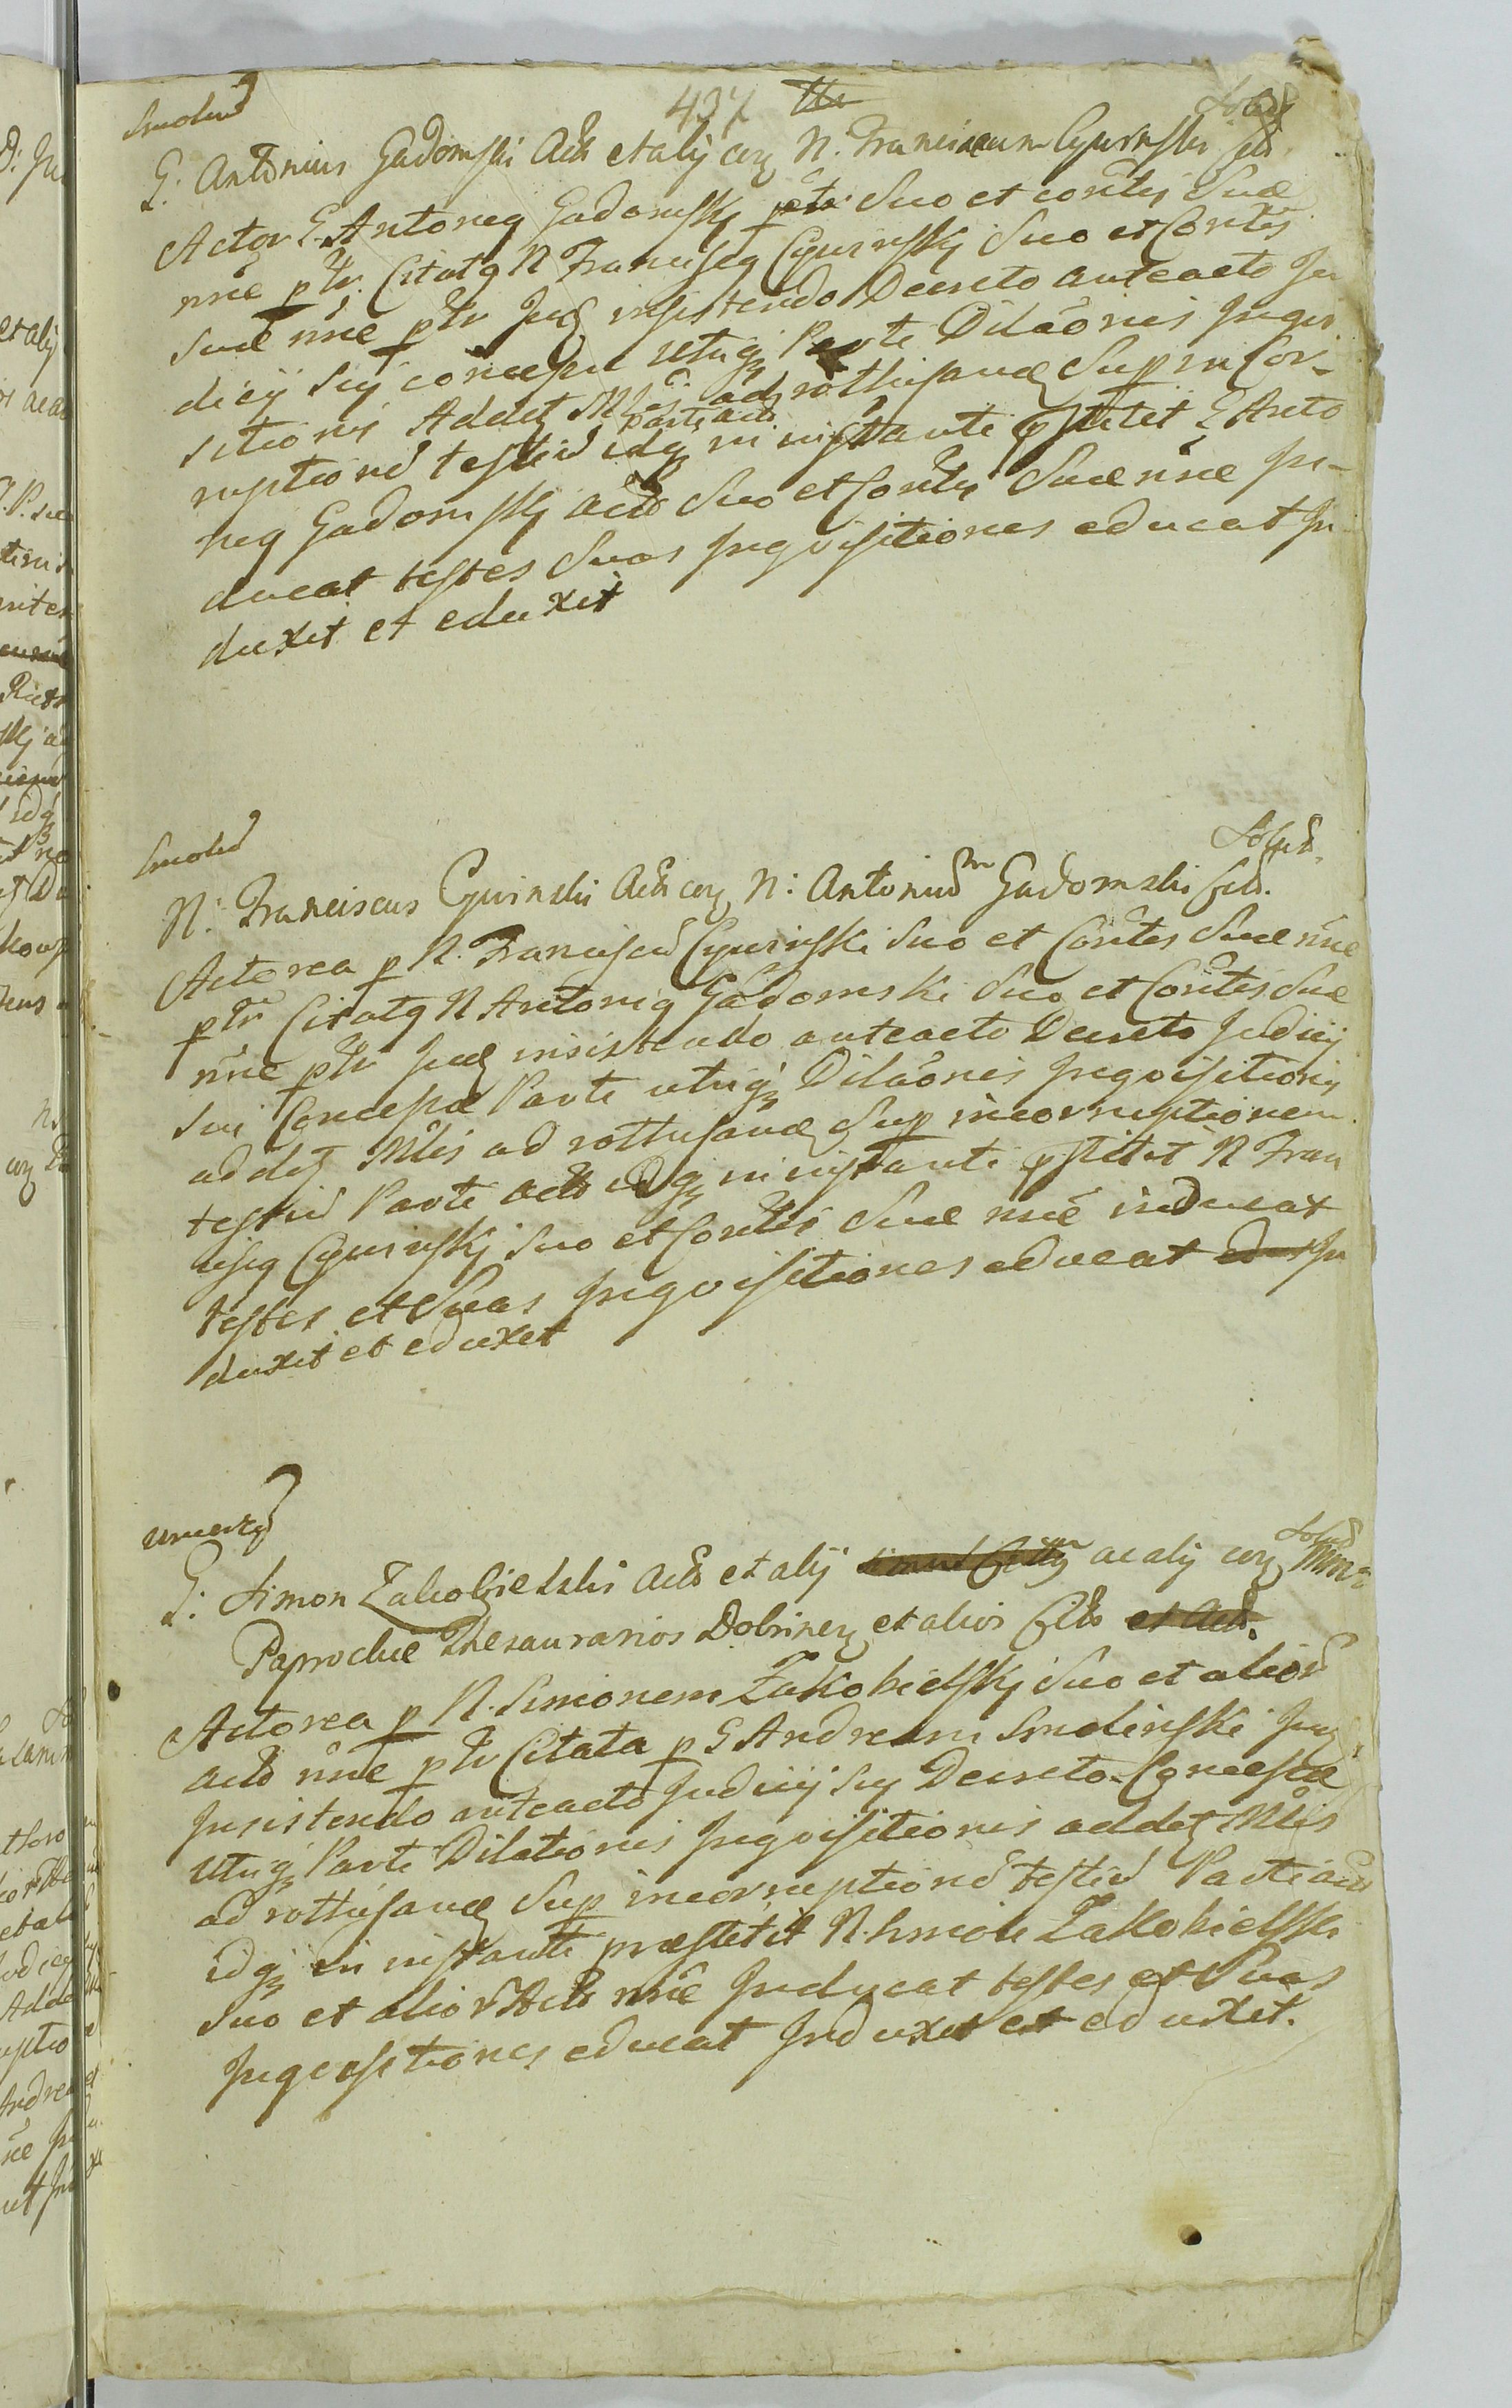 437
G. Antonius Gadomski Act et alij cız N. Franciscum Cywinski Citt
Actor G. Antoniꝯ Gadomskj ptr Suo et cortis Suæ
nne ptr. Citatꝯ N Franciscꝯ Cywinskj Suo et Cortis
Suæ nne ptr Juꝫ insistendo Decreto anteacto Ju
dicij Sıj concessæ utriqꝫ Parte Dilaonis Inqvi
sitionis Addetꝫ Mtis ad rotthisandꝫ Sup incor-
Parti act
ruptionē testiū idqꝫ in instanti p̄stitit G Anto
niꝯ Gadomskj act Suo et Cortis Suæ nne In-
ducat testes Suas Inqvisitiones educat In
duxit et eduxit
Solut.
N: Franciscus Cywinski Act cız N: Antoniū Gadomski Citt.
Actorea p N. Franciscū Cywinski Suo et Cortis Suæ nne
ptr Citatꝯ N Antoniꝯ Gadomski Suo et Cortis Suæ
nne ptr Juꝫ insistendo anteacto Decreto Judicij
sui Concessæ Parte utriqꝫ Dilaonis Inqvisitionis
addetꝫ Mtis ad rotthisandꝫ Sup incorruptionem
testiū Parti act idqꝫ in instanti p̄stitit N Fran
ciscꝯ Cywinskj Suo et Cortis Suæ nne inducat
testes et Suas Inqvisitiones educat In
duxit et eduxit
G: Simon Zakobielski Act et alij ac alij cız Mm:
Paprockie Thesaurarios Dobrinenꝫ et alios Citt et Act.
Actorea p N. Simonem Zakobielskj Suo et aliorū
act nne ptr Citata p G Andream Smolinski Juꝫ
Insistendo anteacto Judicij Sıj Decreto Concessæ
utriqꝫ Parti Dilationis Inqvisitionis addetꝫ Mtis
ad rotthisandꝫ Sup incorruptionē testiū Parti act
idqꝫ in instanti præstitit N. Simon Zakobielski
Suo et aliorū Act nne Inducat testes et Suas
Inqvisitiones educat Induxit et eduxit.